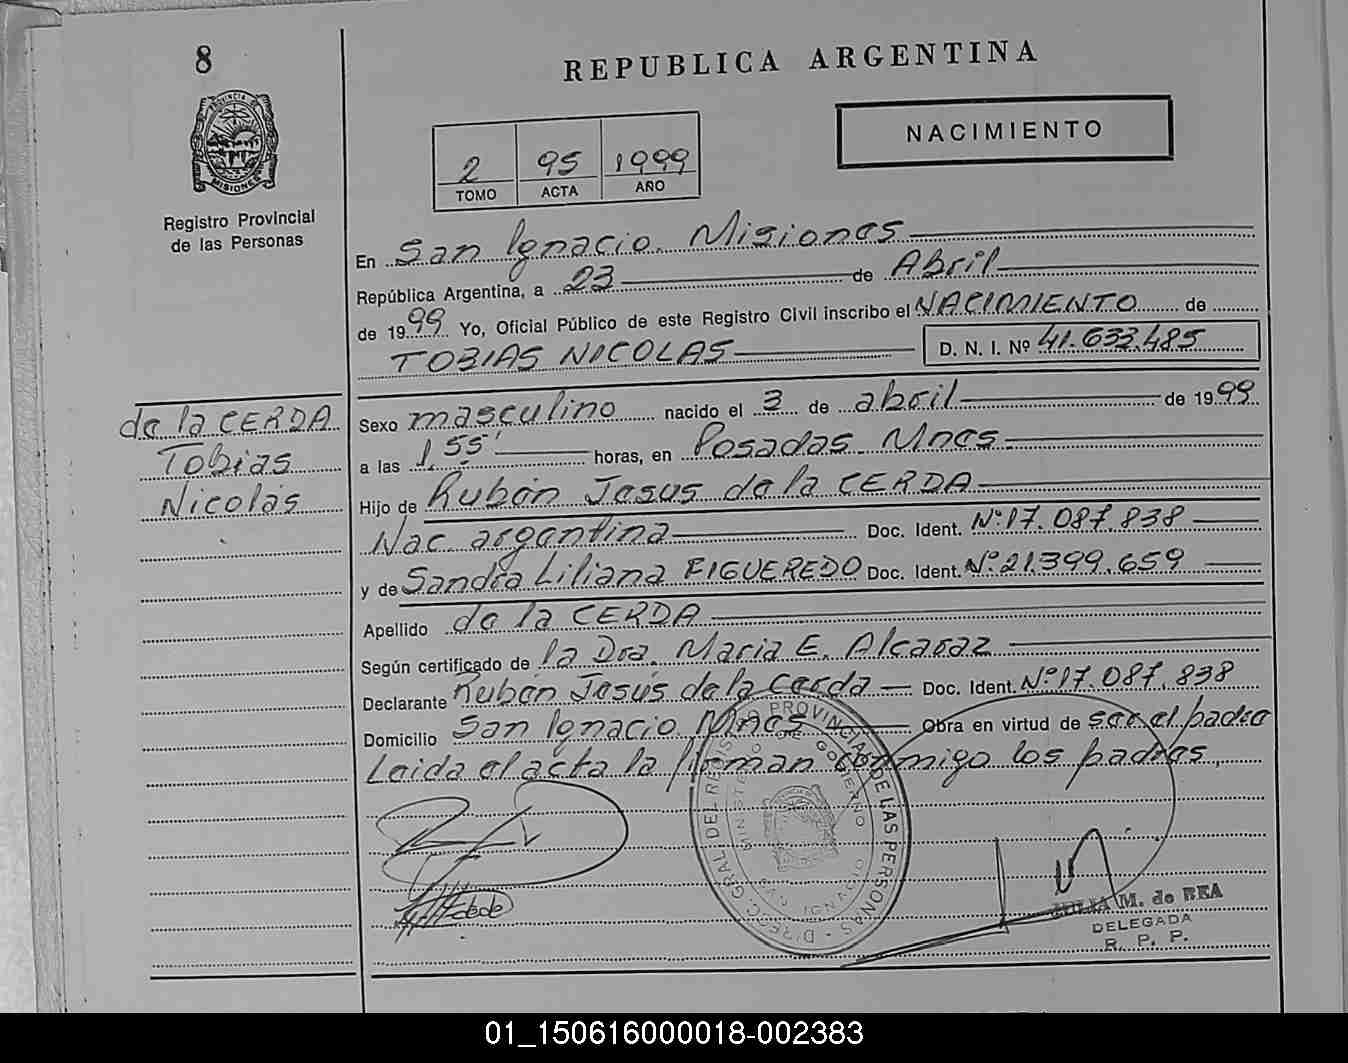 8
REPUBLICA ARGENTINA
NACIMIENTO
2 95 1999
TOMO ACTA AÑO
PROVINCIA DE MISIONES
Registro Provincial
de las Personas
En San Ignacio. Misiones
República Argentina, a 23 de Abril
de 1999 Yo, Oficial Público de este Registro Civil inscribo el NACIMIENTO de
TOBIAS NICOLAS D. N. I. Nº 41.632.485
de la CERDA
Tobias
Nicolás
Sexo masculino nacido el 3 de abril de 1999
a las 1,55' horas, en Posadas. Mnes
Hijo de Rubén Jesus de la CERDA
Nac. argentina Doc. Ident. Nº 17.087.838
y de Sandra Liliana FIGUEREDO Doc. Ident. Nº 21.399.659
Apellido de la CERDA
Según certificado de la Dra. Maria E. Alcaraz
Declarante Rubén Jesús de la Cerda Doc. Ident. Nº 17.087.838
Domicilio San Ignacio Mnes Obra en virtud de ser el padre
Leida el acta la firman conmigo los padres
DIRECC. GRAL. DEL REGISTRO PROVINCIAL DE LAS PERSONAS
MINISTERIO DE GOBIERNO
SAN IGNACIO
M. de REA
DELEGADA
R. P. P.
01_150616000018-002383